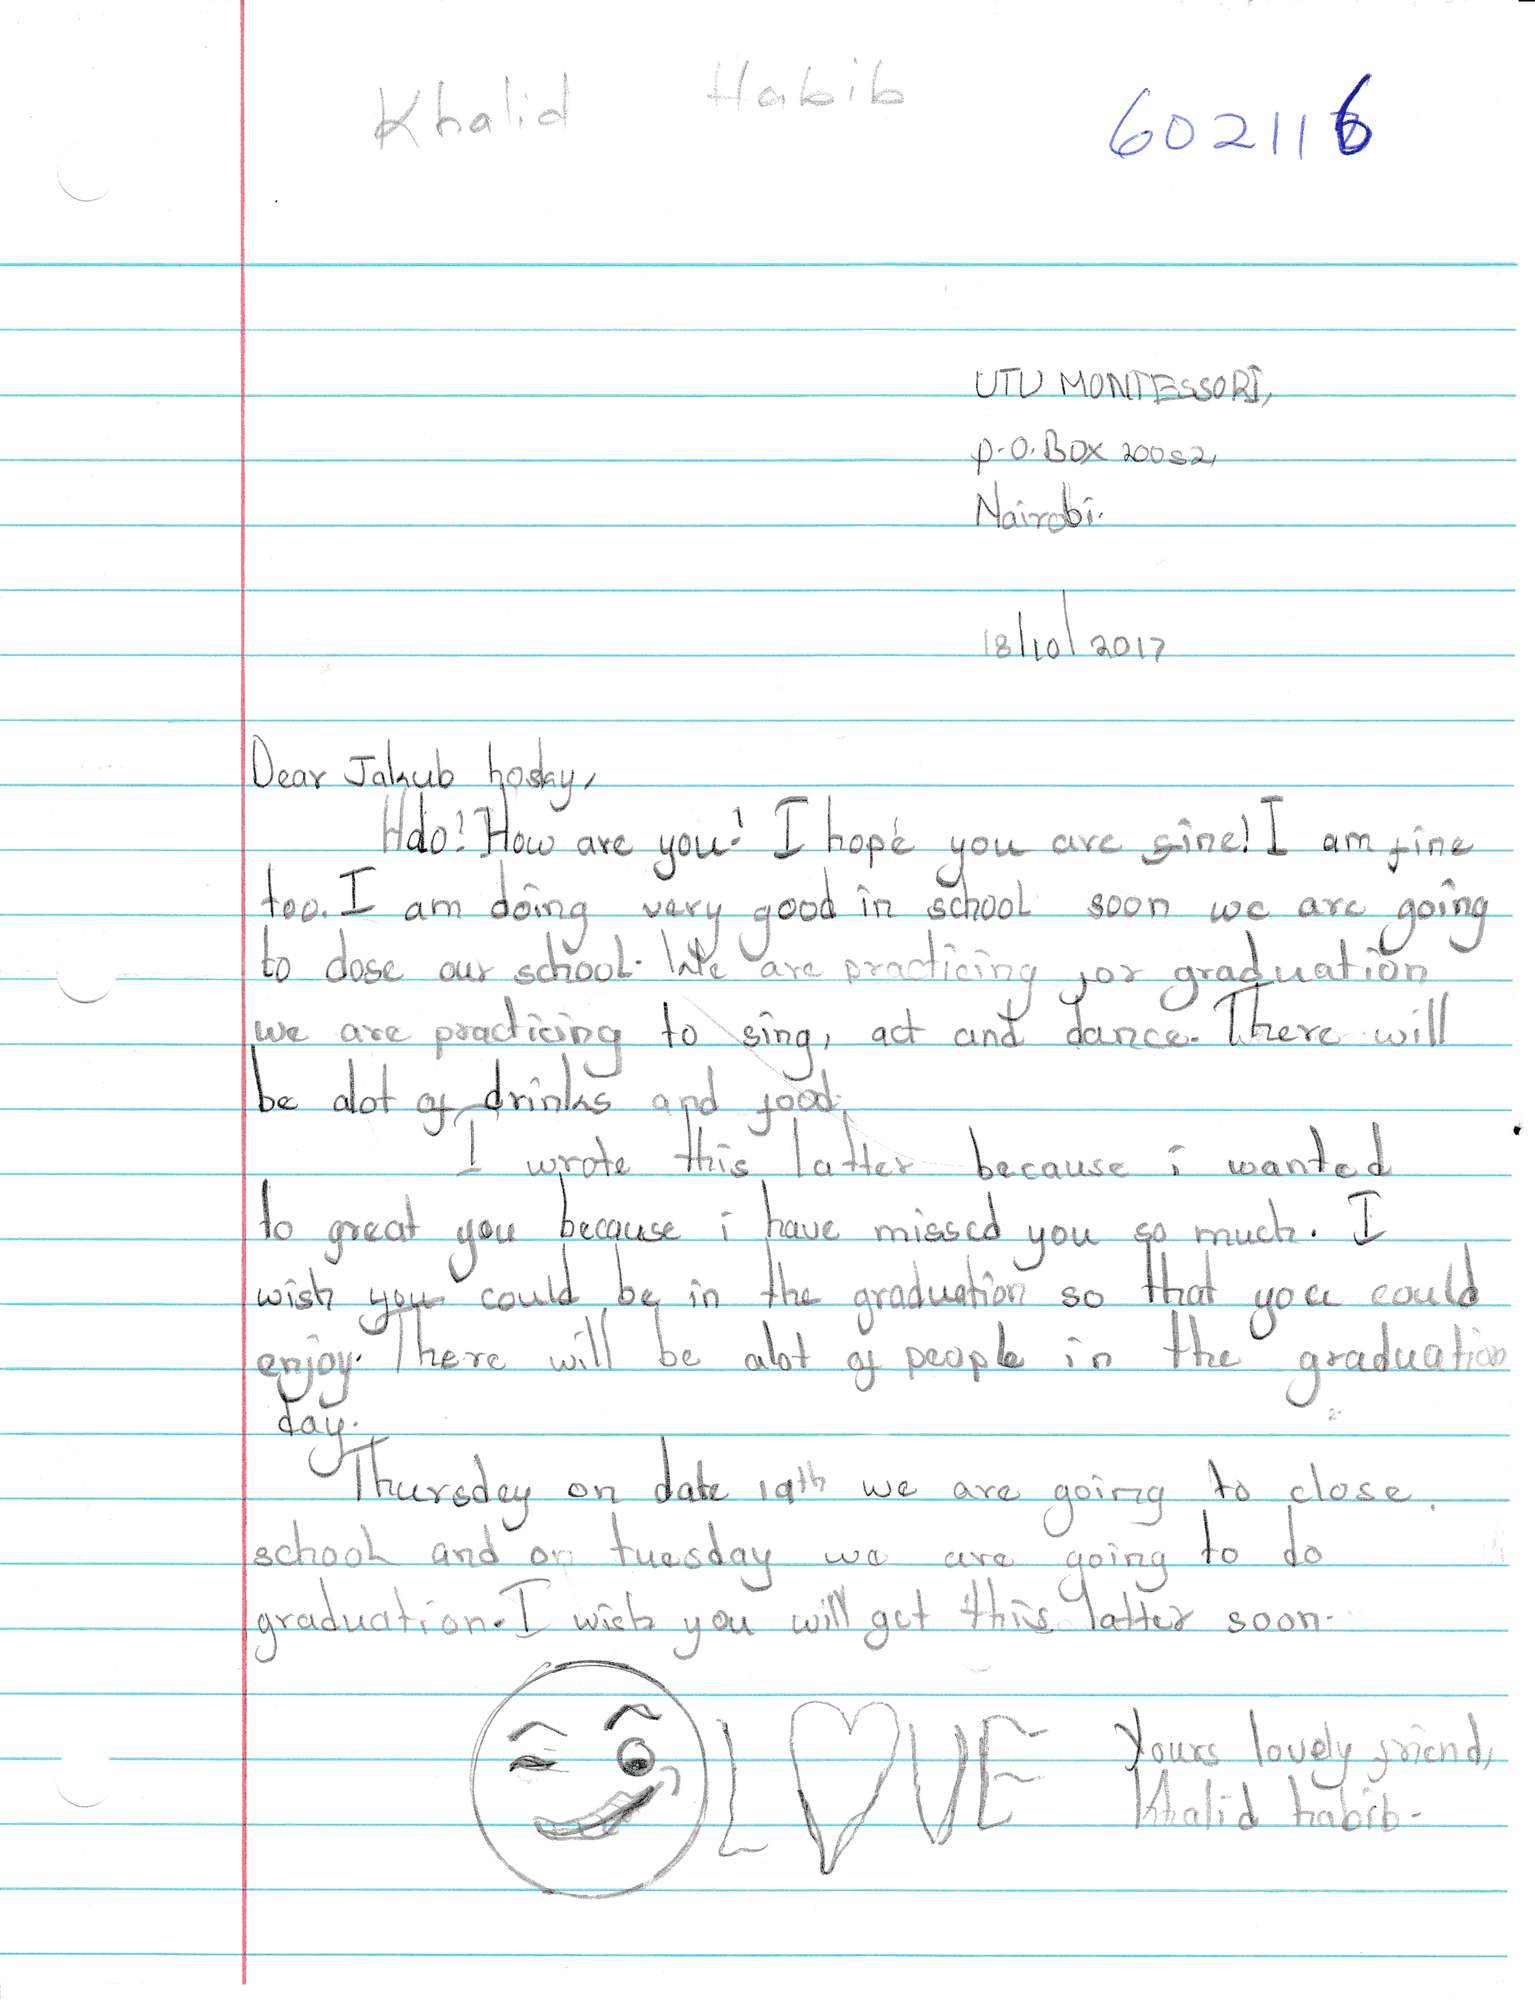 Khalid Habib
602116
UTU MONTESSORI,
P.O. BOX 20052,
Nairobi.
18/10/2017
Dear Jakub hosky,
Hello! How are you! I hope you are fine! I am fine
too. I am doing very good in school soon we are going
to close our school. We are practicing for graduation
we are practicing to sing, act and dance. There will
be alot of drinks and food.
I wrote this latter because i wanted
to great you because i have missed you so much. I
wish you could be in the graduation so that you could
enjoy. There will be alot of people in the graduation
day.
Thursday on date 19th we are going to close
school and on tuesday we are going to do
graduation. I wish you will get this latter soon.
LOVE
Yours lovely friend,
Khalid habib.